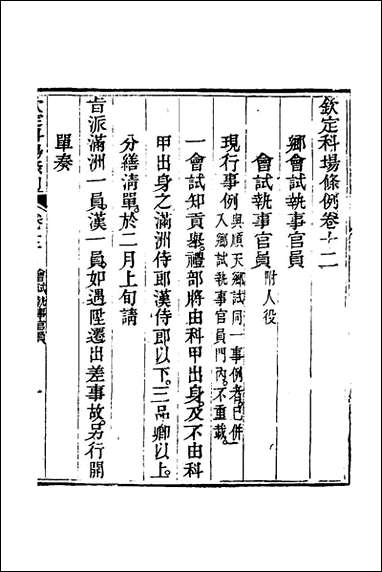 欽定科場條例卷十二
鄉會試執事官員
會試執事官員 附人役
現行事例 與順天鄉試同一事例者已併
入鄉試執事官員門內不重載
一會試知貢舉禮部將由科甲出身及不由科
甲出身之滿洲侍郎漢侍郎以下三品卿以上
分繕清單於二月上旬請
旨派滿洲一員漢一員如遇陞遷出差事故另行開
單奏
會試執事官員